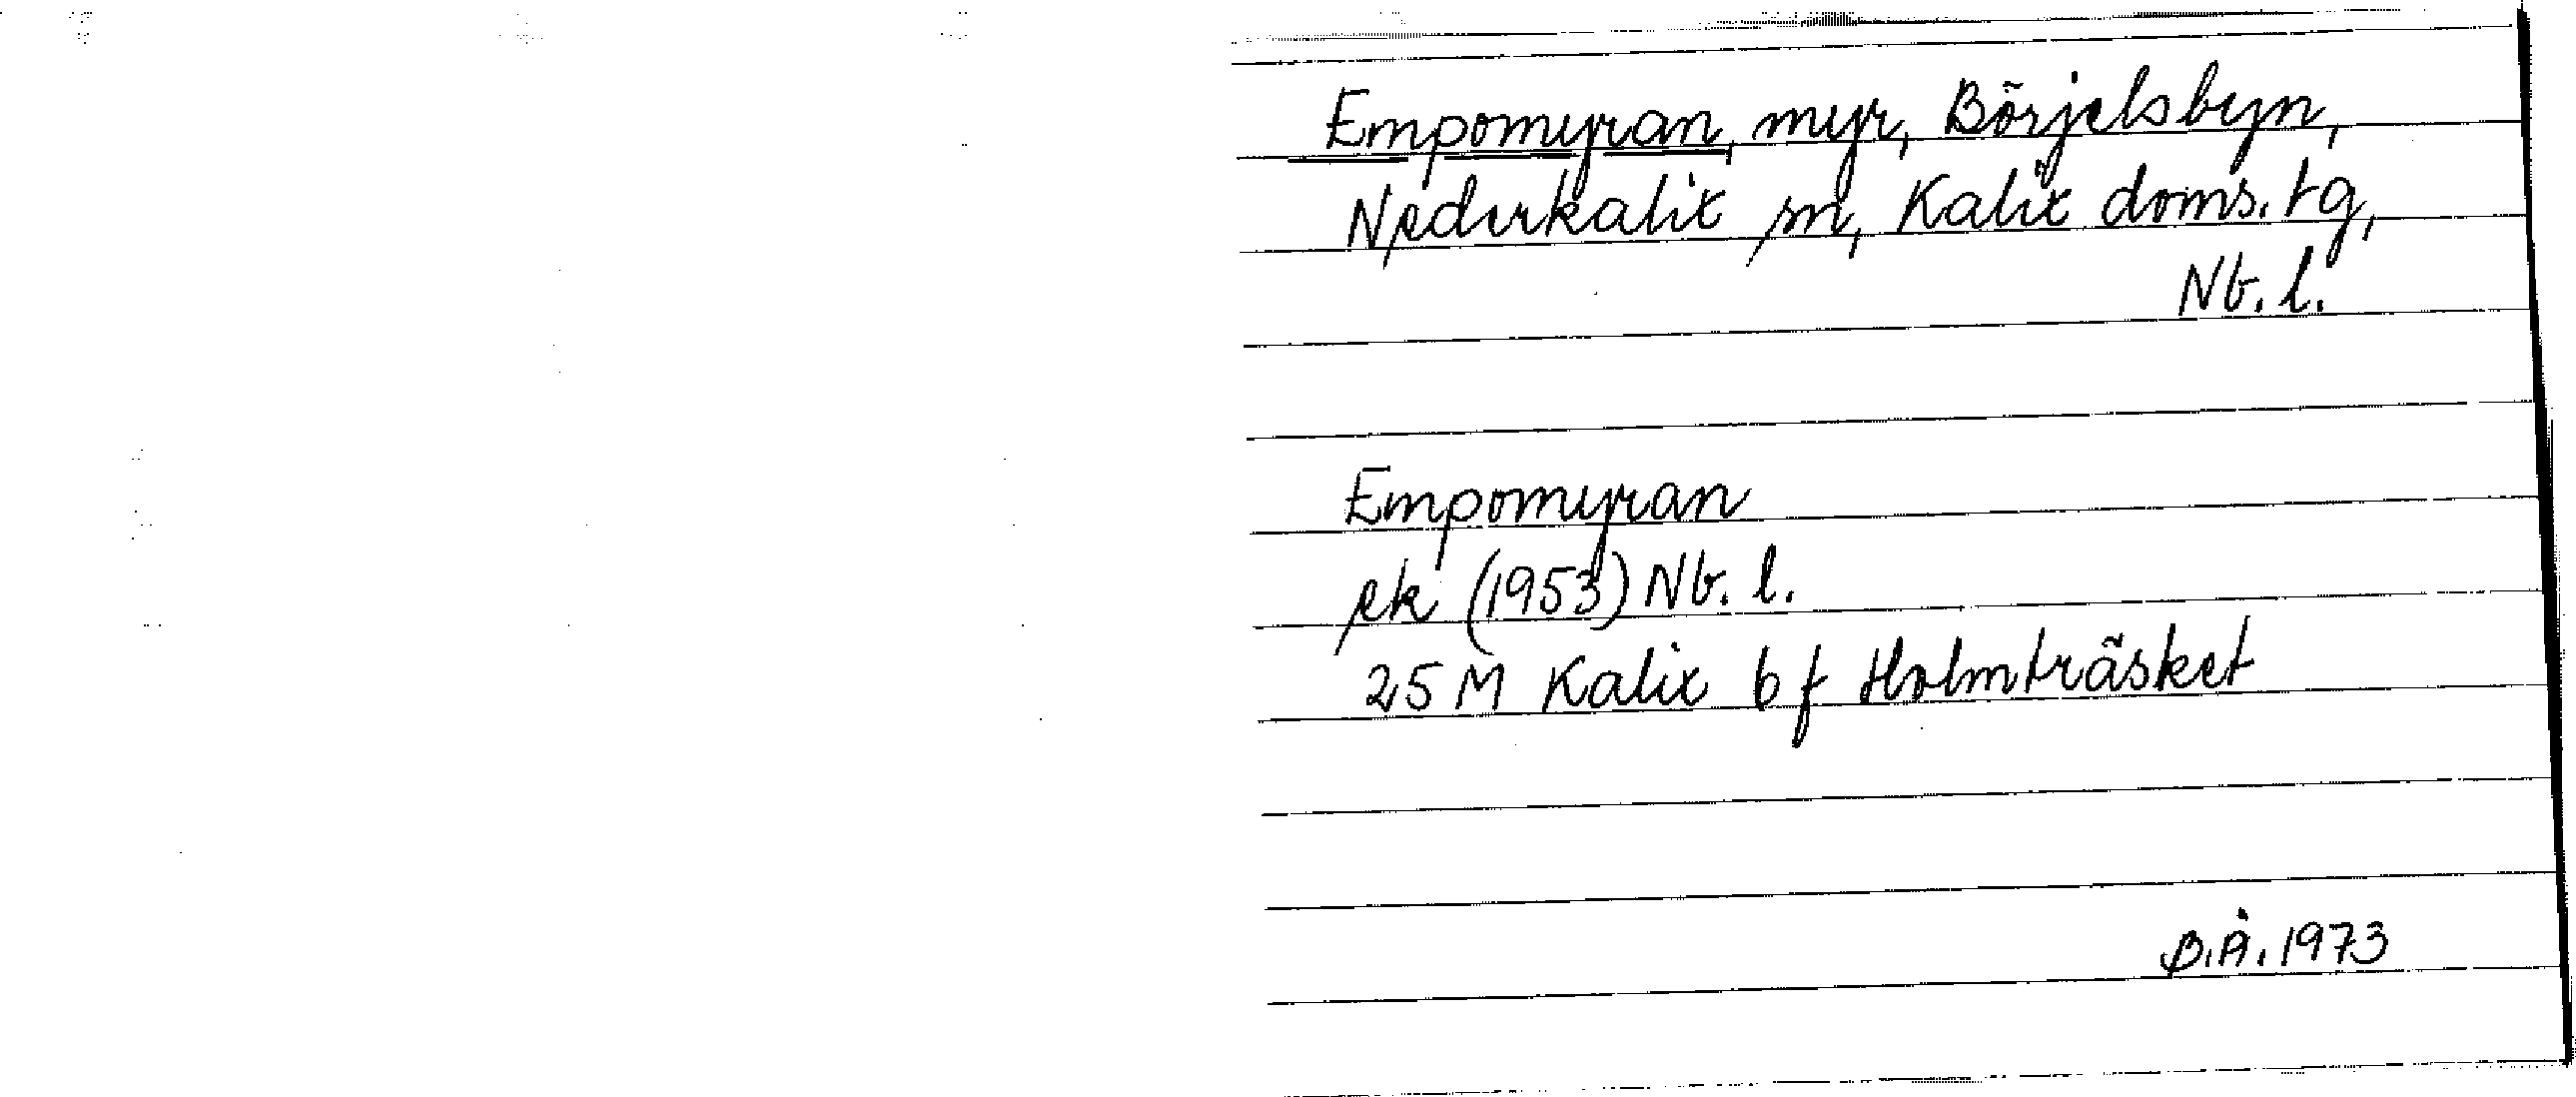 Empomyran, myr, Börjelsbyn,
Nederkalix sn, Kalix doms.tg,
Nb. l.
Empomyran
ek (1953) Nb. l.
25 M Kalix 6 f Holmträsket
B.Å. 1973